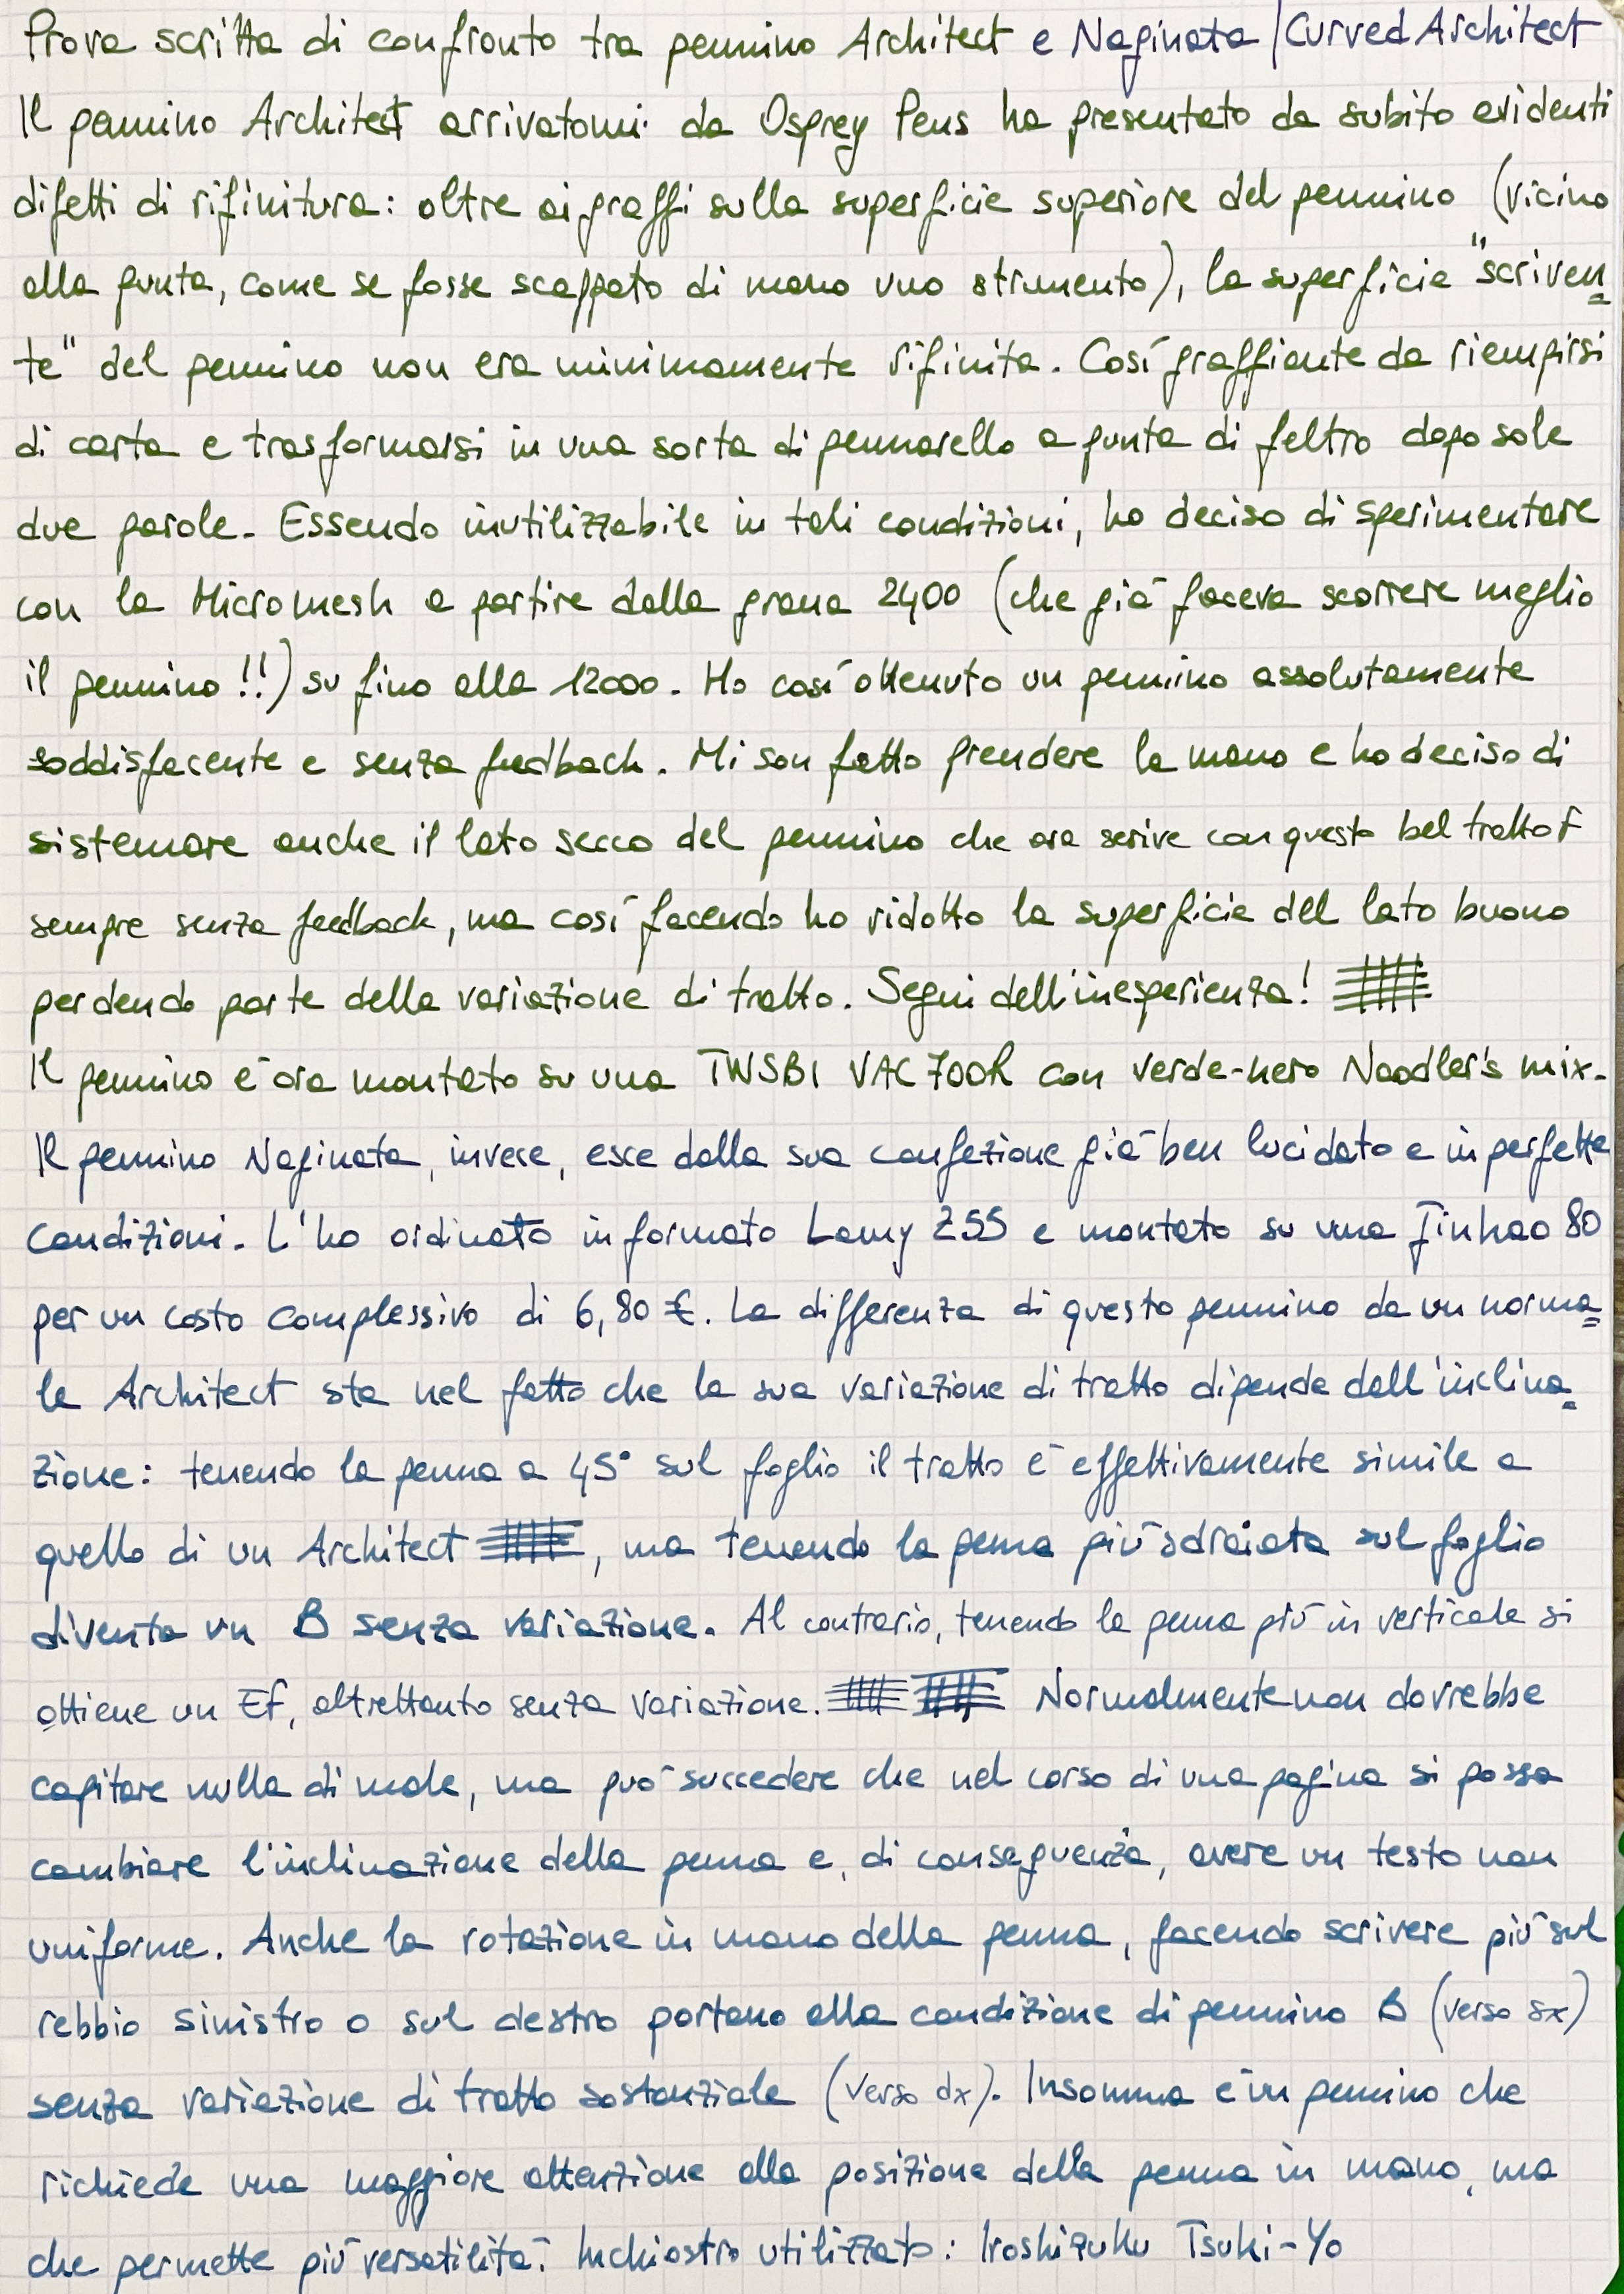 Prova scritta di confronto tra pennino Architect e Naginata/Curved Architect
Il pennino Architect arrivatomi da Osprey Pens ha presentato da subito evidenti
difetti di rifinitura: oltre ai graffi sulla superficie superiore del pennino (vicino
alla punta, come se fosse scappato di mano uno strumento), la superficie "scriven=
te" del pennino non era minimamente rifinita. Così graffiante da riempirsi
di carta e trasformarsi in una sorta di pennarello a punta di feltro dopo sole
due parole. Essendo inutilizzabile in tali condizioni, ho deciso di sperimentare
con la Micromesh a partire dalla grana 2400 (che già faceva scorrere meglio
il pennino!!) su fino alla 12000. Ho così ottenuto un pennino assolutamente
soddisfacente e senza feedback. Mi son fatto prendere la mano e ho deciso di
sistemare anche il lato secco del pennino che ora scrive con questo bel tratto F
sempre senza feedback, ma così facendo ho ridotto la superficie del lato buono
perdendo parte della variazione di tratto. Segni dell'inesperienza!
Il pennino è ora montato su una TWSBI VAC 700R con verde-nero Noodler's mix.
Il pennino Naginata, invece, esce dalla sua confezione già ben lucidato e in perfette
condizioni. L'ho ordinato in formato Lamy Z55 e montato su una Jinhao 80
per un costo complessivo di 6,80 €. La differenza di questo pennino da un norma=
le Architect sta nel fatto che la sua variazione di tratto dipende dall'inclina=
zione: tenendo la penna a 45° sul foglio il tratto è effettivamente simile a
quello di un Architect, ma tenendo la penna più sdraiata sul foglio
diventa un B senza variazione. Al contrario, tenendo la penna più in verticale si
ottiene un EF, altrettanto senza variazione. Normalmente non dovrebbe
capitare nulla di male, ma può succedere che nel corso di una pagina si possa
cambiare l'inclinazione della penna e, di conseguenza, avere un testo non
uniforme. Anche la rotazione in mano della penna, facendo scrivere più sul
rebbio sinistro o sul destro portano alla condizione di pennino B (verso sx)
senza variazione di tratto sostanziale (verso dx). Insomma è un pennino che
richiede una maggiore attenzione alla posizione della penna in mano, ma
che permette più versatilità. Inchiostro utilizzato: Iroshizuku Tsuki-Yo